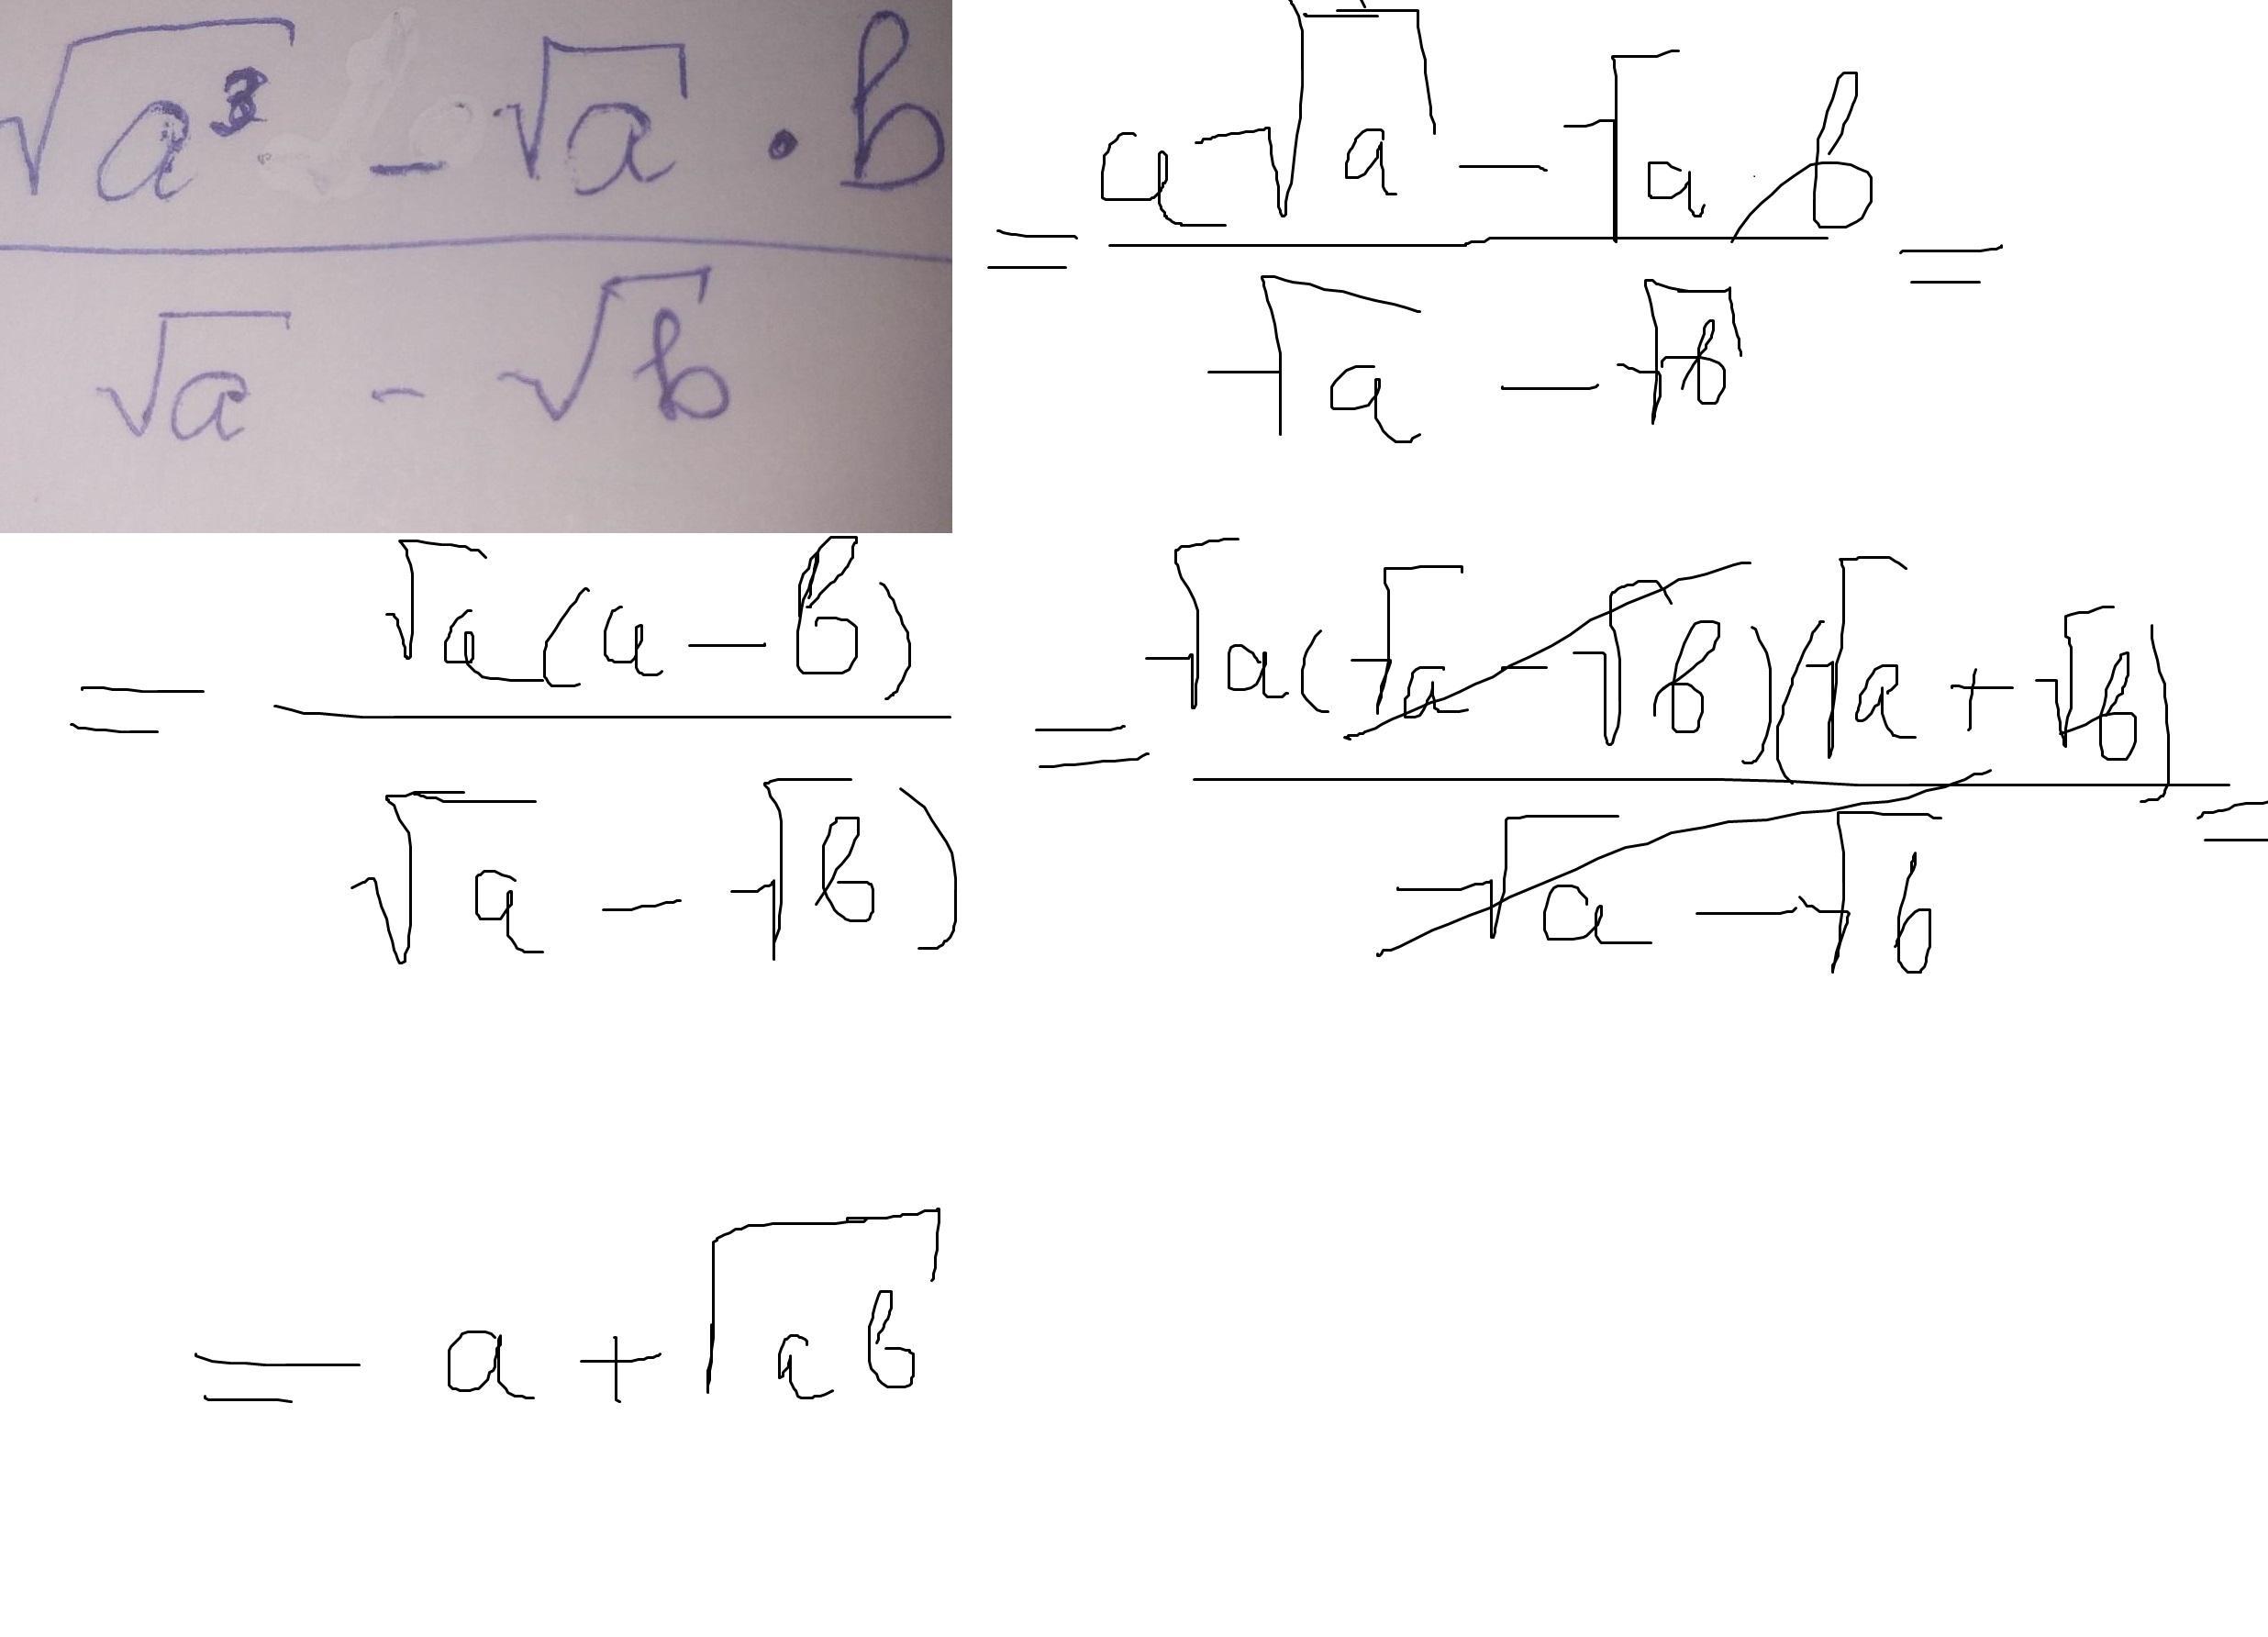 (√a³ - √a · b) / (√a - √b) = (a√a - √a b) / (√a - √b) =
= √a(a - b) / (√a - √b)) = √a(√a - √b)(√a + √b) / (√a - √b) =
= a + √ab